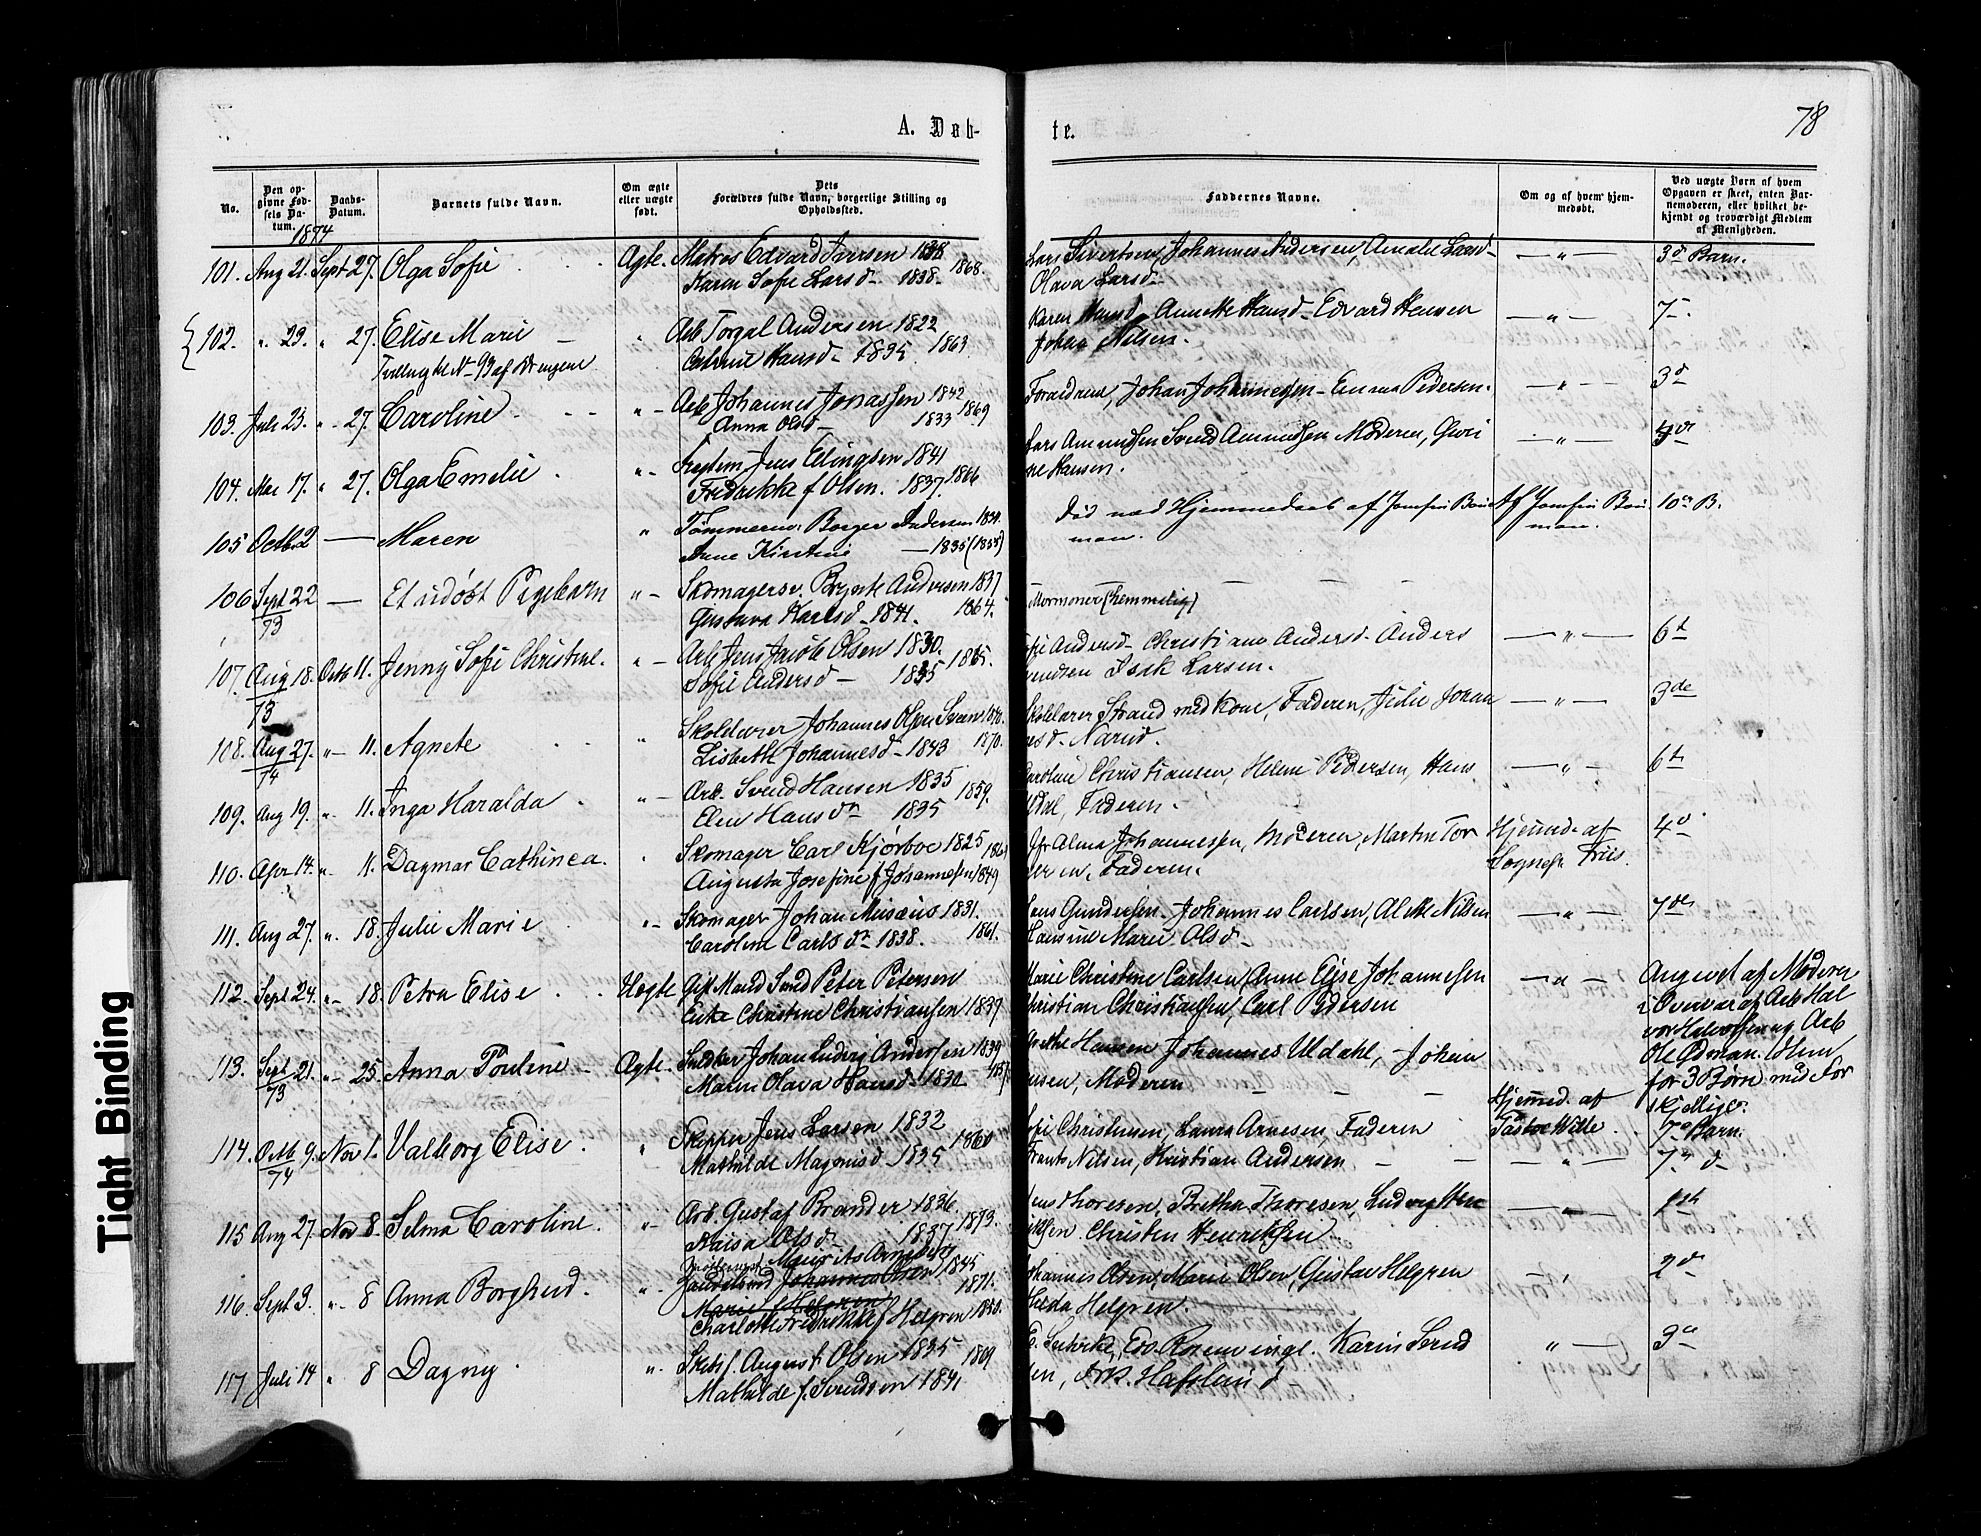 78
A. Døb-
te.
No.
Den op-
givne Fød-
sels Da-
tum.
Daabs-
Datum.
Barnets fulde Navn.
Om ægte
eller uægte
født.
Dets
Forældres fulde Navn, borgerlige Stilling og
Opholdssted.
Faddernes Navne.
Om og af hvem hjem-
medøbt.
Ved uægte Børn af hvem
Opgaven er skeet, enten Bar-
nemoderen, eller hvilket be-
kjendt og troværdigt Medlem
af Menigheden.
1874
101. Aug 21. Sept 27. Olga Sofie Ægte. Matros Edvard Iversen 1838
Karen Sofie Larsd 1838 1868.
Lars Sivertsen, Johannes Andersen, Amalie Larsd
Olava Larsd
3d Barn.
102. " 29. " 27. Elise Marie " Arb Torgal Andersen 1822
Hansd 1835 1863
Tvilling til No 93 af Drengene
Karen Hansd Annette Hansd Edvard Hansen
Johan Nilsen.
7
103. Juli 23. " 27. Caroline " Arb Johannes Jonassen 1842
Anna Olsd 1833 1869
Forældrene, Johan Johannesen Emma Pedersen.
3d
104. Mai 17. " 27. Olga Emelie " Jens Ellingsen 1841
Fredrikke f Olsen. 1837. 1866
Lars Amundsen Svend Amundsen Moderen,
ne Hansen.
105 Octb 2 — Maren " Tømmerm. Borger Andersen 1834.
Anne Kirstine — 1835 (1855)
Død ved Hjemmedaab af Jomfru
man.
Af Jomfru
man.
10de B.
106 Sept 22
73
— Et udøbt Pigebarn " Skomagersv. Andersen 1837
Gustava Karlsd 1841. 1864.
Mormoner (hemmelig)
107. Aug 18. Octb 11. Jenny Sofie Christine. " Arb Jens Jacob Olsen 1830.
73
Sofie Andersd 1835 1865.
Sofie Andersd Christiane Andersd Anders
Isak Larsen.
6t
108. Aug 27. " 11. Agnete " Skolelærer Johannes Olsen
74
Lisbeth Johannesd 1843 1870.
Skolelærer Strand med Kone, Faderen, Julie Johan
nesd Narud.
3de
109. Aug 19. " 11. Inga Haralda " Arb. Svend Hansen 1835
Elen Hansdr 1835 1859.
Caroline Christiansen, Helene Pedersen, Hans
Faderen.
6t
110. Apr 14. " 11. Dagmar Cathinca. Skomager Carl Kjørboe 1825
Augusta Josefine f Johannesen 1849
Jfr Alma Johannessen, Moderen, Martin Tor
Faderen.
Hjemmed. af
Sognepr Friis.
4d
111. Aug 27. " 18. Julie Marie " Skomager Johan Musæus 1831.
Caroline Carlsdr 1838. 1861.
Hans Gundersen Johannes Carlsen, Alette Nilsen
Hansine Marie Olsd
7de
112. Sept 24. " 18. Petra Elise Uægte Gift Mand Smed Peter Petersen
Enke Christine Christiansen 1839
Marie Christine Carlsen, Anne Elise Johannesen
Christian Christiansen, Carl Pedersen
Angivet af Moderen
i Overvær af Arb Hal
vor Halvorsen og Arb
Ole Ødman.
for 3 Børn med for
skjellige.
113. Sept 21. " 25. Anna Pouline Ægte. Snedker Johan Ludvig Andersen 1839
73
Maren Olava Hansd 1830
Grethe Hansen Johannes Uldahl, Johan
Moderen
Hjemmed. af
Pastor Wille
7d Barn.
114. Octb 9. Nov 1. Valborg Elise. " Skipper Jens Larsen 1832
74
Mathilde Magnisd 1835 1860
Sofie Christensen, Laura Arnesen, Faderen
Frants Nilsen, Kristian Andersen
7
115 Aug 27. Nov 8. Selma Caroline. " Arb. Gustaf Brander 1836.
Kaisa Olsd 1837 1873.
Jens Thoresen, Bretha Thoresen, Ludvig Hen
riksen Christen Henriksen
116. Sept 3. " 8 Anna Borghild. " Johannes Olsen 1845
1871.
Marie f Helgren
Charlotte Fredrikke f Helgren 1850.
Johannes Olsen, Marie Olsen, Gustav Helgren
Hilda Helgren.
2d
117 Juli 14 " 8 Dagny " August Olsen 1835 1869
Mathilde f. Svendsen 1841
Karin Svend
sen, Frk. Hafslund
3
Tight Binding